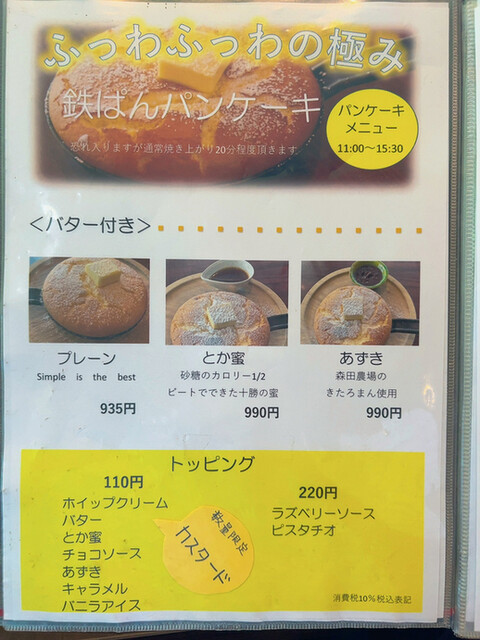 ふっわふっわの極み
鉄ぱんパンケーキ
恐れ入りますが通常焼き上がり20分程度頂きます
パンケーキ
メニュー
11:00～15:30
＜バター付き＞
プレーン
Simple is the best
935円
とか蜜
砂糖のカロリー1/2
ビートでできた十勝の蜜
990円
あずき
森田農場の
きたろまん使用
990円
トッピング
110円
ホイップクリーム
バター
とか蜜
チョコソース
あずき
キャラメル
バニラアイス
数量限定
カスタード
220円
ラズベリーソース
ピスタチオ
消費税10％税込表記